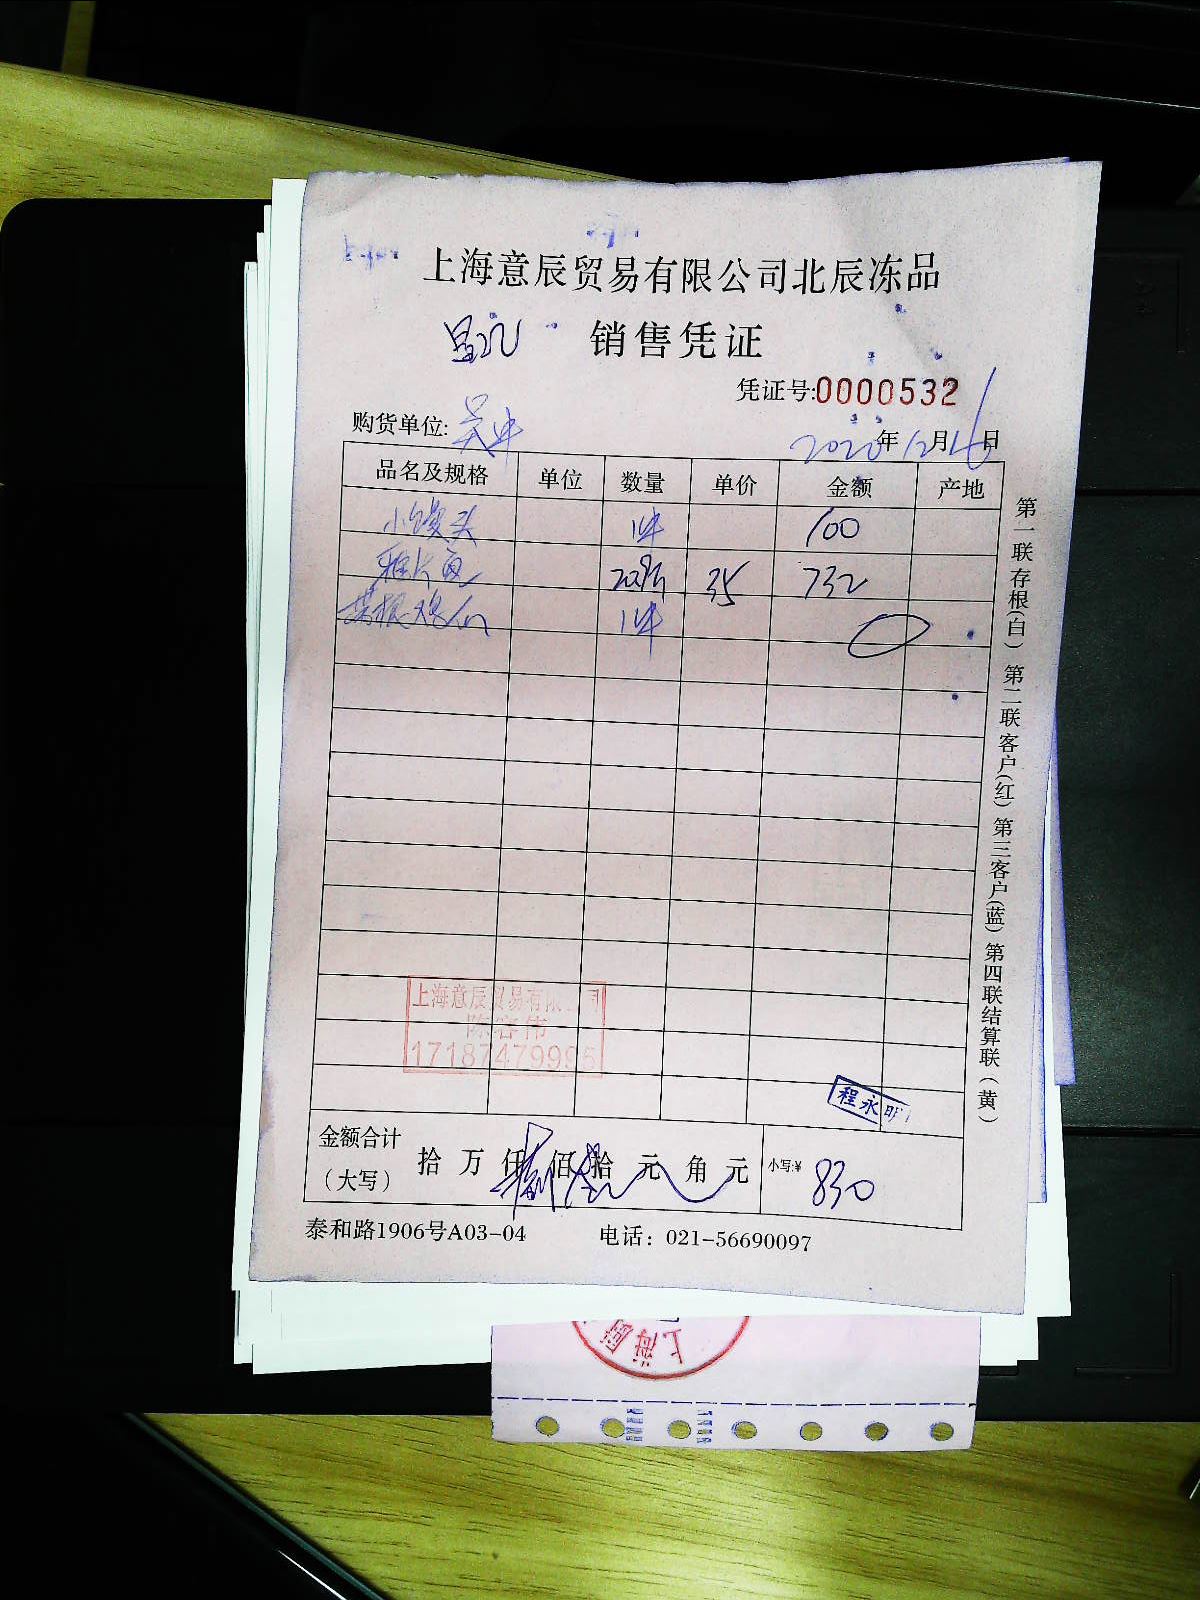 上海意辰贸易有限公司北辰冻品
销售凭证
凭证号:0000532
购货单位:
2020年12月16日
品名及规格 单位 数量 单价 金额 产地
小馒头 1件 100
35 732
1件
第一联存根(白) 第二联客户(红) 第三客户(蓝) 第四联结算联(黄)
上海意辰贸易有限公司
陈容伟
17187479995
程永明
金额合计
(大写)
拾 万 仟 佰 拾 元 角 元
小写:¥ 830
泰和路1906号A03-04 电话: 021-56690097
上海